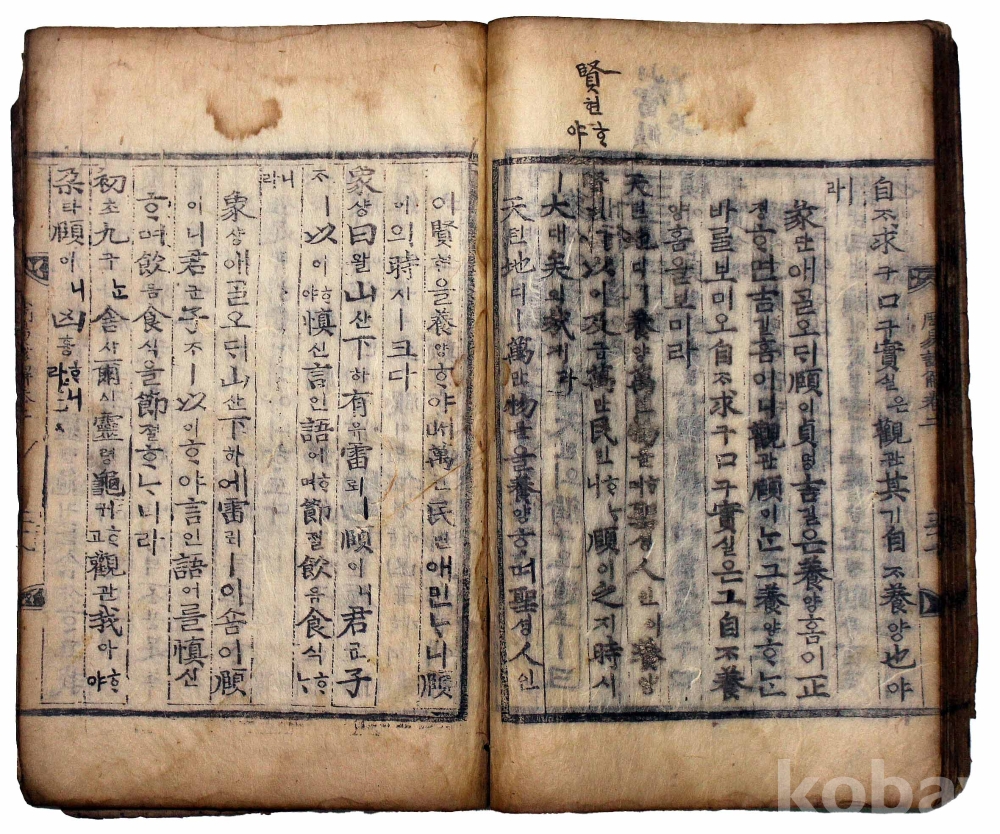 賢현ᄒᆞ야
自ᄌᆞ求구口구實실은觀관其기自ᄌᆞ養양也야
ㅣ라
彖단애ᄀᆞᆯ오ᄃᆡ頤이貞뎡吉길은養양홈이正
졍ᄒᆞ면吉길홈이니觀관頤이ᄂᆞᆫ그養양ᄒᆞᄂᆞᆫ
바ᄅᆞᆯ보미오自ᄌᆞ求구口구實실은그自ᄌᆞ養
양홈을보미라
天텬地디ㅣ養양萬만物믈ᄒᆞ며聖셩人인이養양
賢현ᄒᆞ야以이及급萬만民민ᄒᆞᄂᆞ니頤이之지時시
ㅣ大대矣의哉ᄌᆡ라
天텬地디ㅣ萬만物믈을養양ᄒᆞ며聖셩人인
이賢현을養양ᄒᆞ야ᄡᅥ萬만民민애밋ᄂᆞ니頤
이의時시ㅣ크다
象샹曰왈山산下하有유雷뢰ㅣ頤이니君군子
ᄌᆞㅣ以이ᄒᆞ야愼신言인語어ᄒᆞ며節졀飮음食식ᄒᆞᄂᆞ
니라
象샹애ᄀᆞᆯ오ᄃᆡ山산下하애雷뢰ㅣ이숌이頤
이니君군子ᄌᆞㅣ以이ᄒᆞ야言인語어를愼신
ᄒᆞ며飮음食식을節졀ᄒᆞᄂᆞ니라
初초九구ᄂᆞᆫ舍샤爾이靈령龜귀ᄒᆞ고觀관我아ᄒᆞ야
朶타頤이니凶흉ᄒᆞ니라
周易諺解卷二
koba